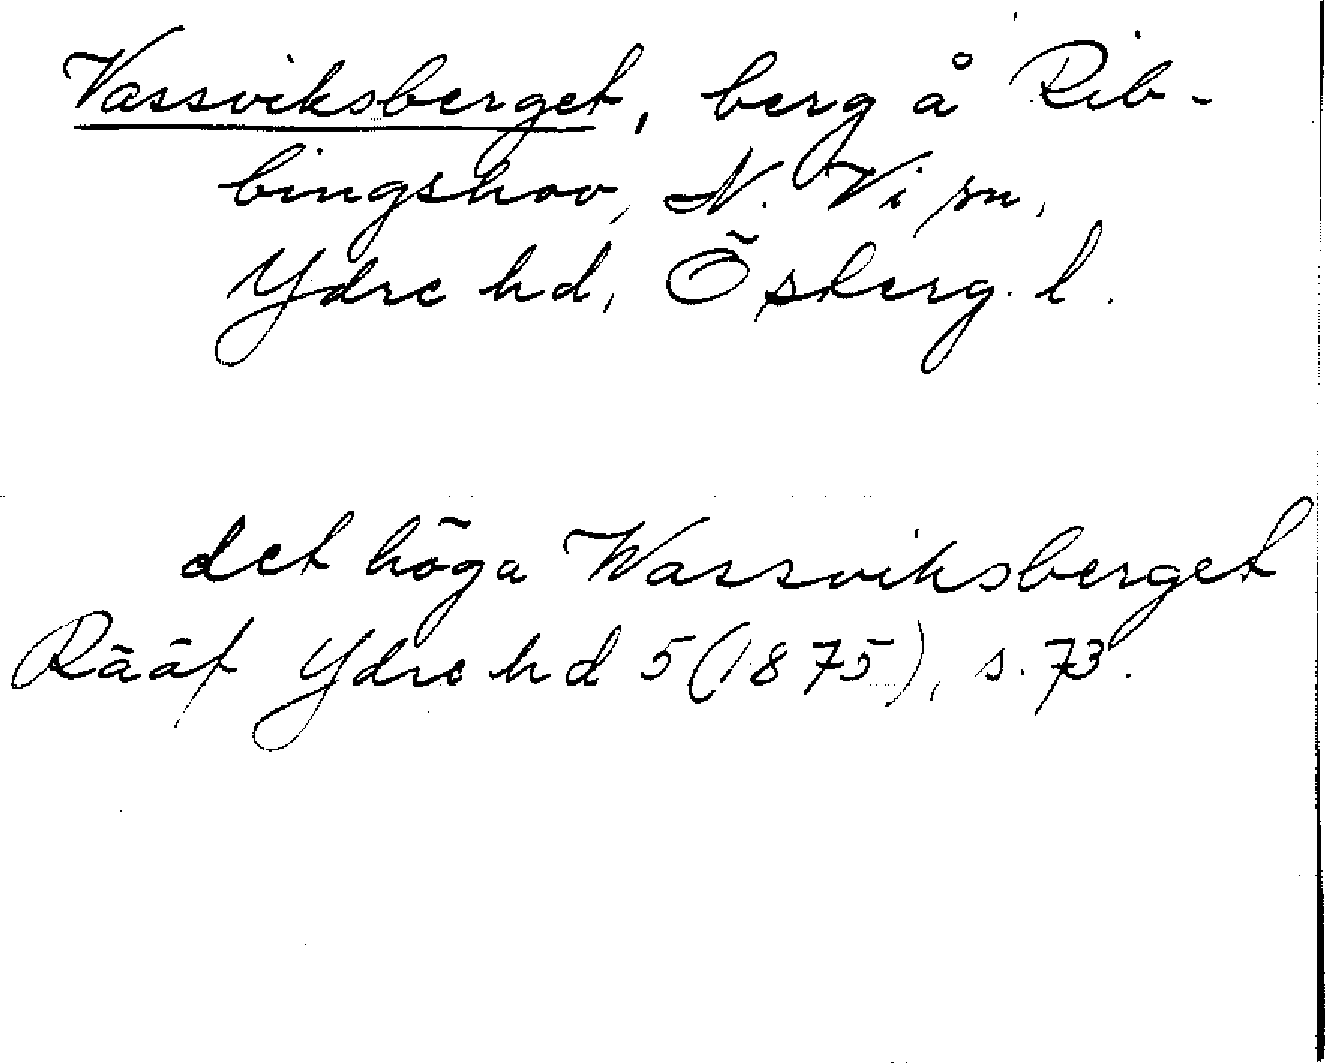 Vassviksberget, berg å Rib-
bingshov, N. Vi sn,
Ydre hd, Österg. l.
det höga Wassviksberget
Rääf Ydre hd 5 (1875), s. 73.